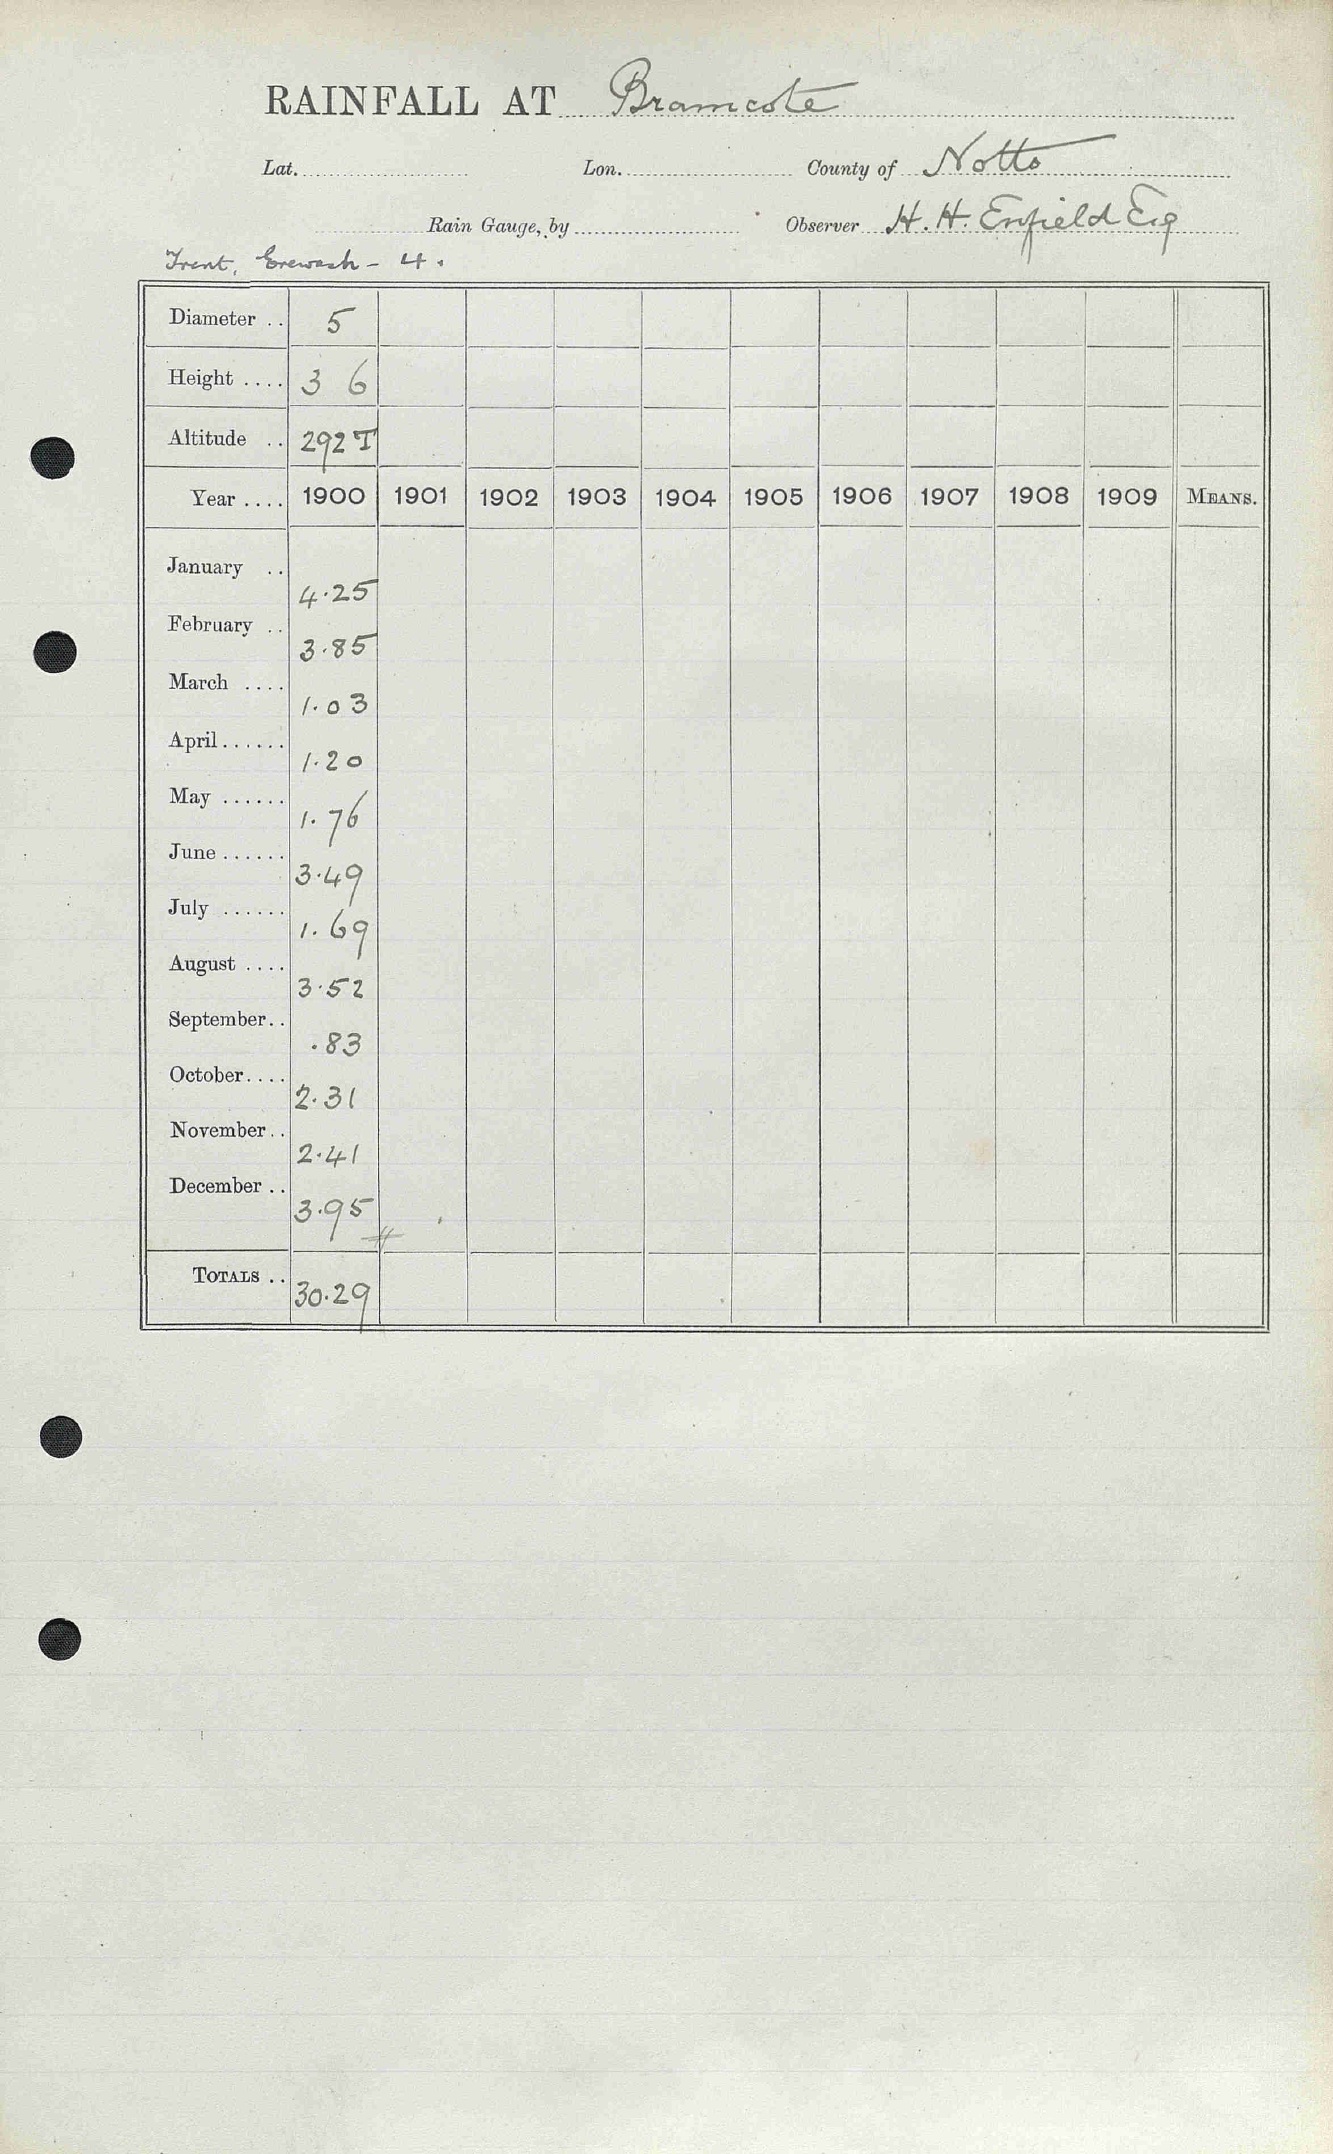 RAINFALL AT Bramcote
Lat. Lon. County of Notts
Rain Gauge, by Observer H. H. Enfield Esq
Trent, Erewash - 4.
Diameter .. 5
Height .... 3 6
Altitude .. 292 T
Year .... 1900 1901 1902 1903 1904 1905 1906 1907 1908 1909 MEANS.
January .. 4.25
February .. 3.85
March .... 1.03
April...... 1.20
May ...... 1.76
June ...... 3.49
July ...... 1.69
August .... 3.52
September.. .83
October.... 2.31
November.. 2.41
December .. 3.95
TOTALS .. 30.29